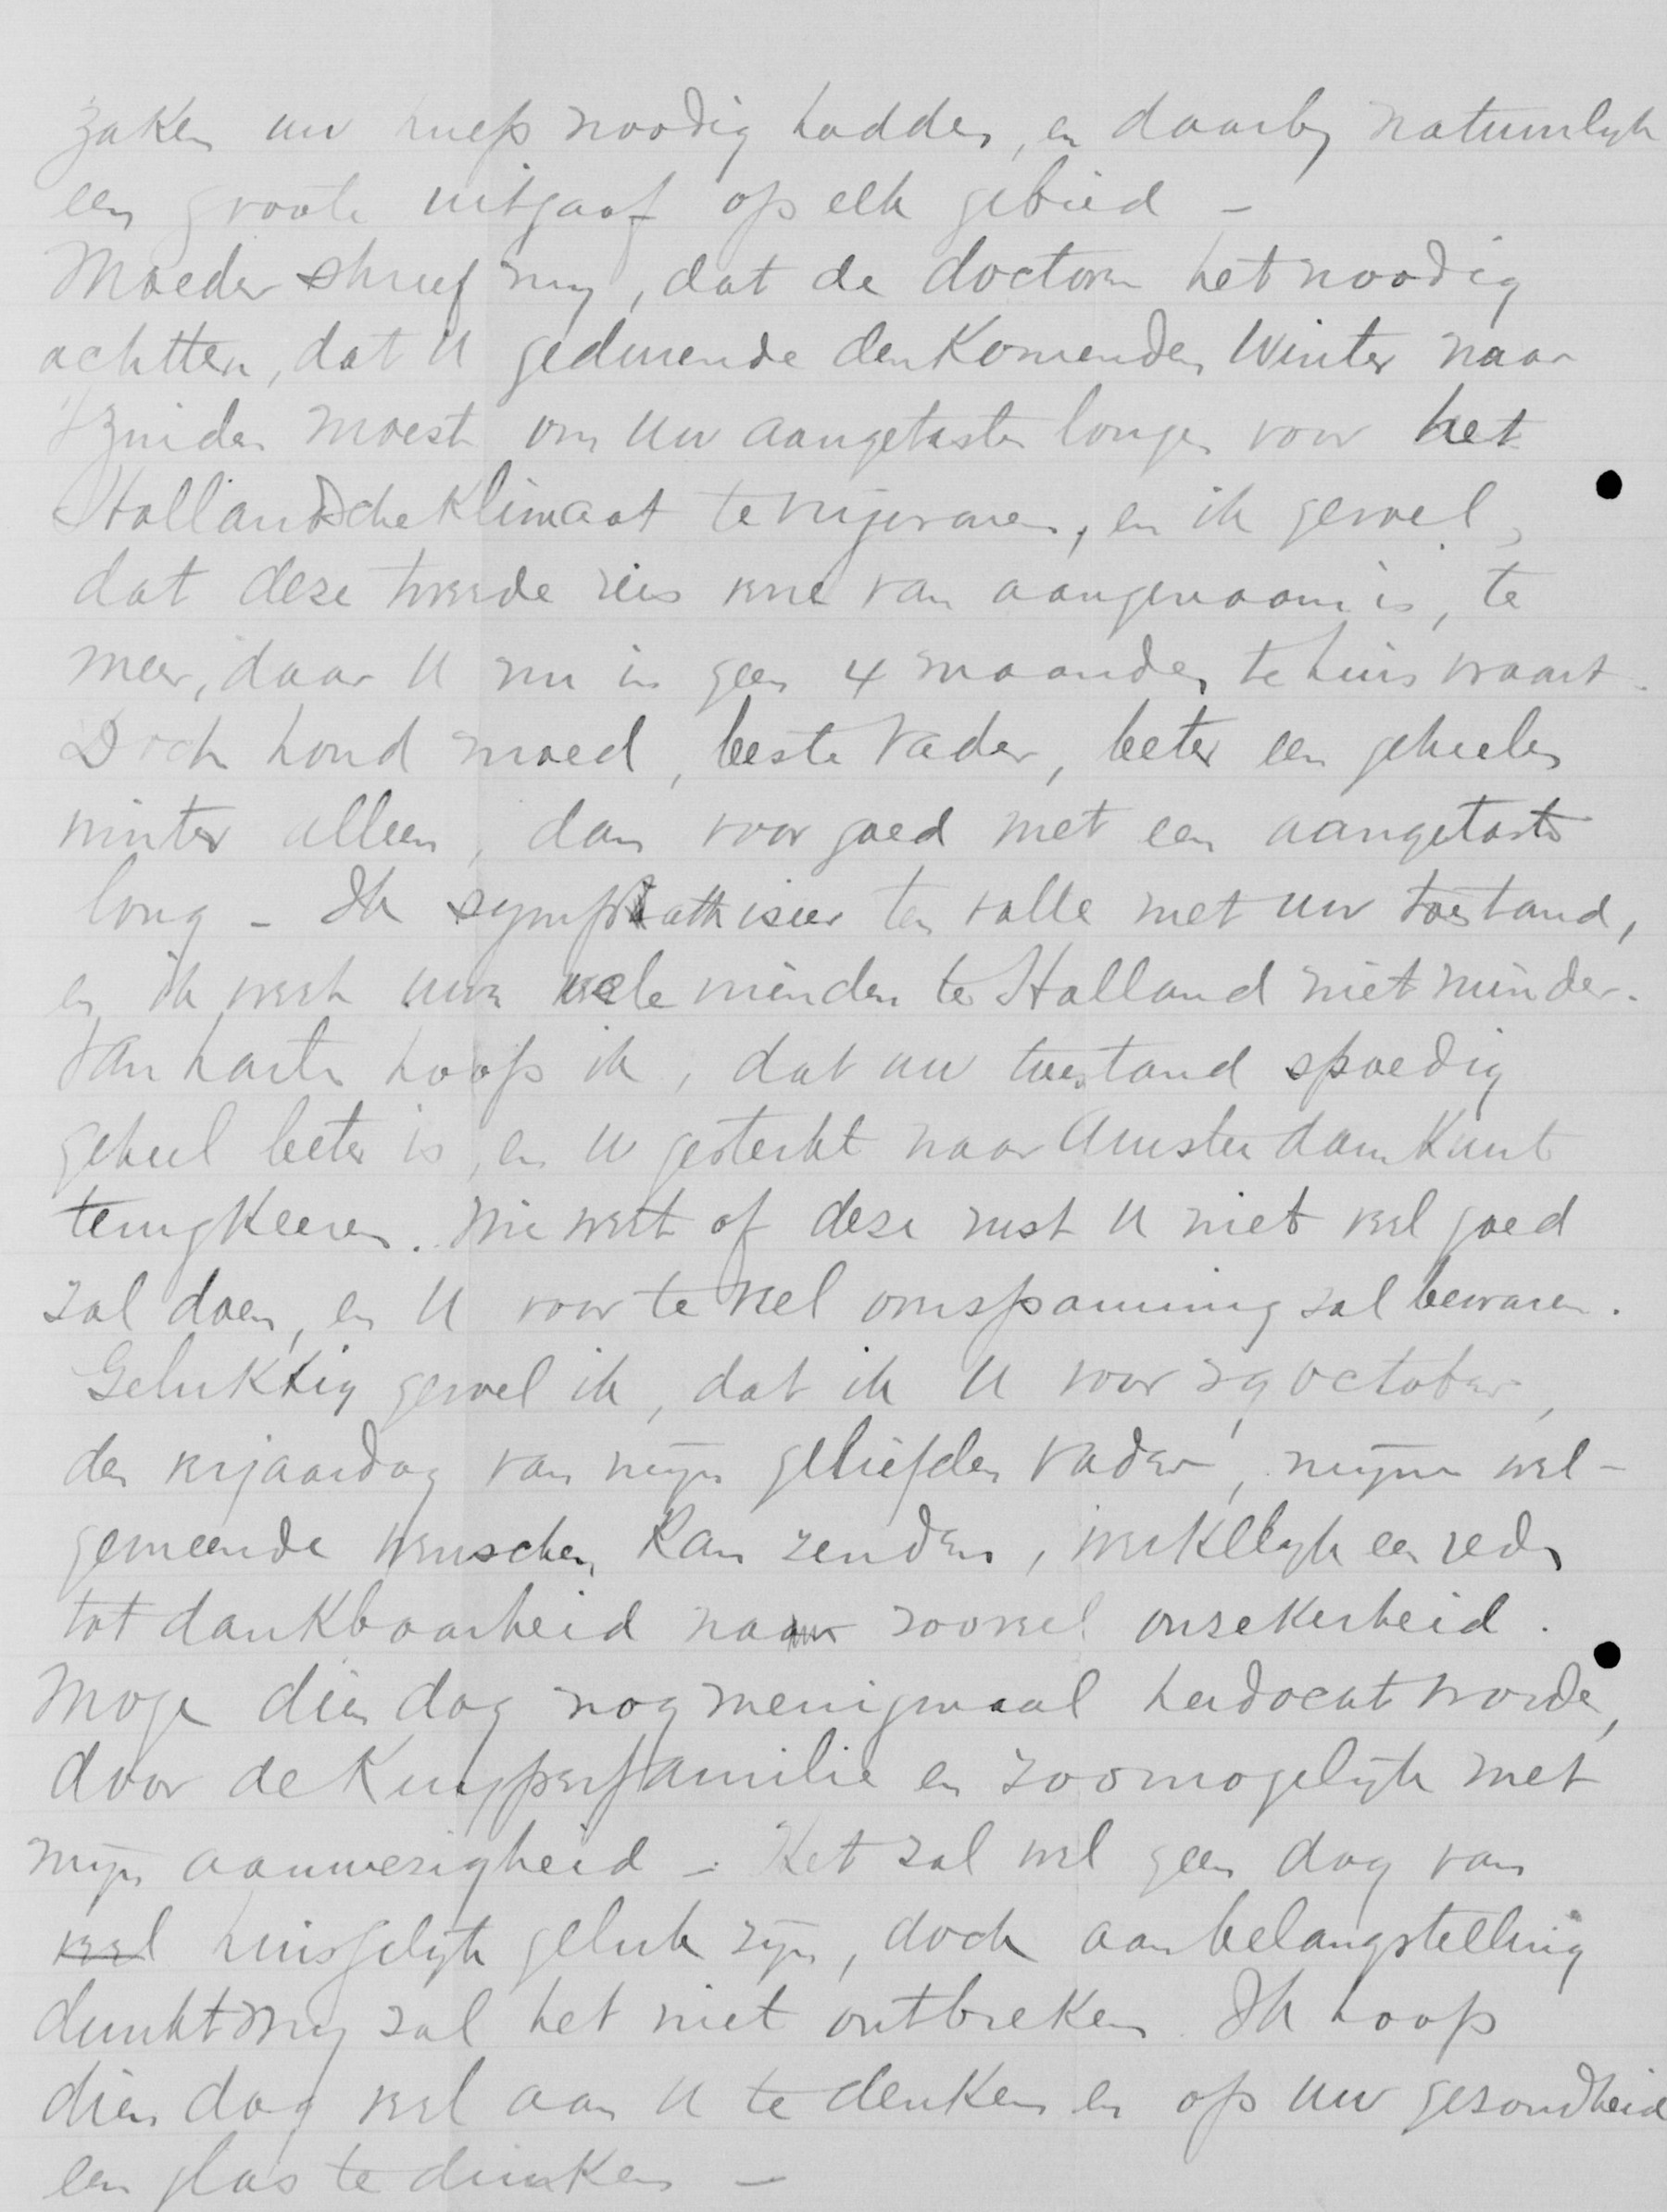 zaken uw hulp noodig hadden, en daarby natuurlyk
een groote uitgaaf op elk gebied –
Moeder shreef my, dat de doctoren het noodig
achtten, dat U gedurende den Komenden Winter naar
't zuiden moest om uw aangetaste longen voor het
Hollandsche Klimaat te vrijwaren, en ik gevoel,
dat deze tweede reis verre van aangenaam is, te
meer, daar U nu in geen 4 maanden te huis waart.
Doch houd moed, beste Vader, beter een geheelen
winter alleen, dan voor goed met een aangetaste
long – Ik sympathiseer ten volle met uw toestand,
en ik weet uwe vele vrienden te Holland niet minder.
Van harte hoop ik, dat uw toestand spoedig
geheel beter is, en U gesterkt naar Amsterdam Kunt
terugkeeren. Wie weet of deze rust U niet veel goed
zal doen, en U voor te veel omspanning zal bewaren.
Gelukkig gevoel ik, dat ik U voor 29 october,
den verjaardag van mijn geliefden Vader, mijne wel-
gemeende wenschen Kan zenden, werkelyk een reden
tot dankbaarheid naar zooveel onzekerheid.
Moge dien dag nog menigmaal herdacht worden,
door de Kuyperfamilie en zoomogelijk met
mijn aanwezigheid – Het zal wel geen dag van
veel huisgelyk geluk zijn, doch aan belangstelling
dunkt my zal het niet ontbreken. Ik hoop
dien dag veel aan U te denken en op uw gezondheid
een glas te drinken –